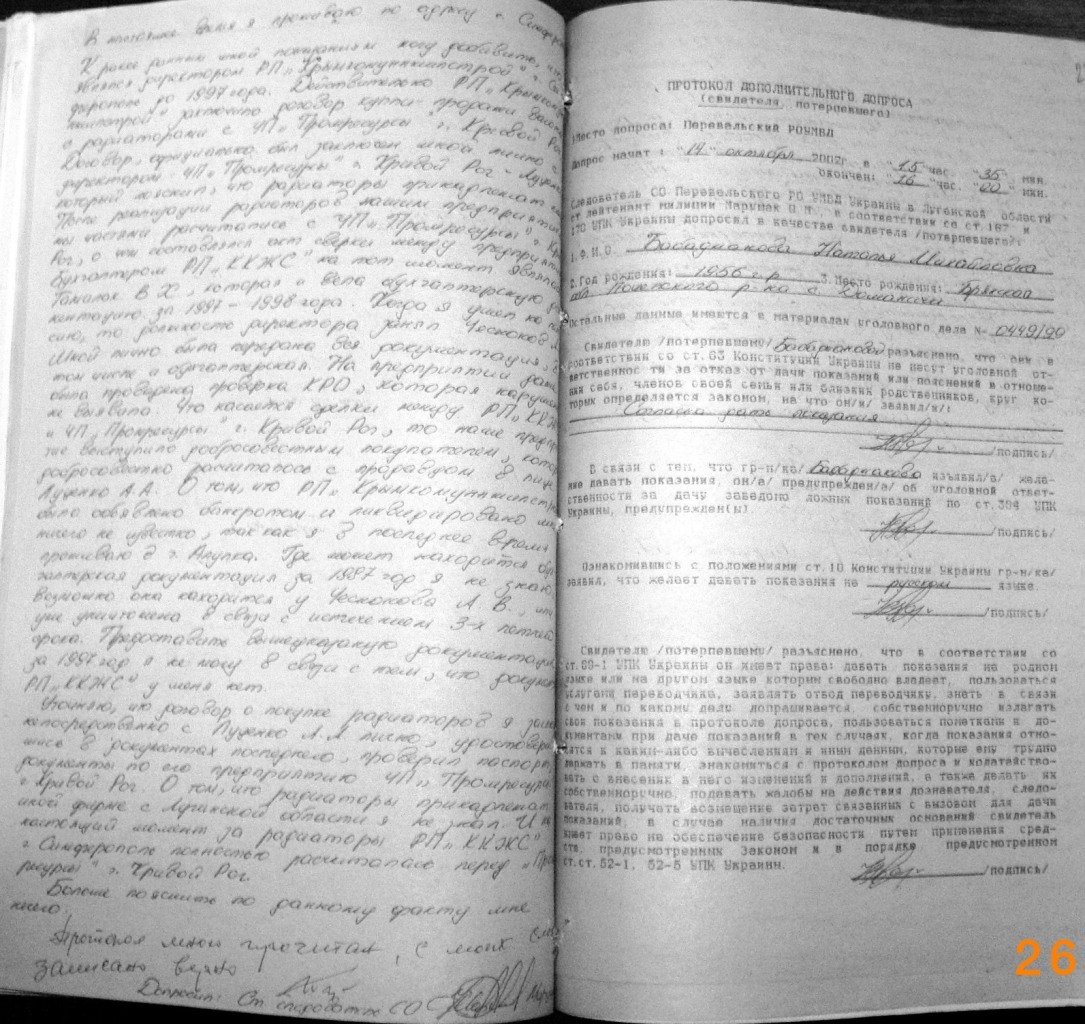 В настоящее время я проживаю по адресу г. Симферо
К ранее данным мной показаниям могу добавить, что
являлся директором РП „Крымкоммунжилстрой" г. Сим
ферополь до 1997 года. Действительно РП „Крымком
заключило договор купли-продажи
с радиаторами с ЧП „Промресурсы" г. Кривой Рог
Договор официально был заключен мной лично с
директором ЧП „Промресурсы" г. Кривой Рог Луценко
который пояснил, что радиаторы принадлежат
После реализации радиаторов нашим предприятием
мы частями расчитались с ЧП „Промресурсы" г. Кр
Рог, о чем составлялся акт сверки между предприят
бухгалтером РП „ККЖС" на тот момент являлась
Гамалок В.Х., которая и вела бухгалтерскую до
кументацию за 1997-1998 года. Когда я ушел на пен
сию, то должность директора занял Чесноков А
Мной лично была передана вся документация, в
том числе и бухгалтерская. На предприятии
была проведена проверка КРО, которая наруше
не выявила. Что касается сделки между РП „ККЖ
и ЧП „Промресурсы" г. Кривой Рог, то наше предпр
тие выступило добросовестным покупателем, кото
добросовестно расчиталось с продавцом в лице
Луценко А.А. О том, что РП „Крымкоммунжилстр
было объявлено банкротом и ликвидировано мне
ничего не известно, так как я в последнее время
проживаю в г. Алупка. Где может находится бух
галтерская документация за 1997 год я не знаю,
возможно она находится у Чеснокова А.В., или
уже уничтожена в связи с истечением 3-х летнего
срока. Предоставить вышеуказанную документацию
за 1997 год я не могу в связи с тем, что докумен
РП „ККЖС" у меня нет.
Уточняю, что договор о покупке радиаторов я заклю
непосредственно с Луценко А.А. лично, удостовери
лся в документах последнего, проверил паспорт,
документы по его предприятию ЧП „Промресурсы
г. Кривой Рог. О том, что радиаторы принадлежат
иной фирме с Луганской области я не знал. И на
настоящий момент за радиаторы РП „ККЖС"
г. Симферополь полностью расчиталась перед „Пром
ресурсы" г. Кривой Рог.
Больше пояснить по данному факту мне
нечего.
Протокол мною прочитан, с моих слов
записано верно
Допросил: Ст. следователь СО
ПРОТОКОЛ ДОПОЛНИТЕЛЬНОГО ДОПРОСА
(свидетеля, потерпевшего)
Место допроса: Перевальский РОУМВД
Допрос начат : "14" октября 2002г в "15" час. "35" мин.
окончен: "16" час. "00" мин.
Следователь СО Перевальского РО УМВД Украины в Луганской области
ст лейтенант милиции Марущак В.Н., в соответствии со ст.167 и
170 УПК Украины допросил в качестве свидетеля /потерпевшего/:
1.Ф.И.О. Бабаджакова Наталья Михайловна
2.Год рождения: 1956 г.р. 3.Место рождения: Брянская
обл. р-ка с. Домаксичи
Остальные данные имеются в материалах уголовного дела N- 0449/99
Свидетелю /потерпевшему/ Бабаджаковой разъяснено, что он в
соответствии со ст.63 Конституции Украины не несут уголовной от-
ветственности за отказ от дачи показаний или пояснений в отноше-
нии себя, членов своей семьи или близких родственников, круг ко-
торых определяется законом, на что он/и/ заявил/и/:
Согласна дать показания
/подпись/
В связи с тем, что гр-н/ка/ Бабаджакова изъявил/а/ жела-
ние давать показания, он/а/ предупрежден/а/ об уголовной ответ-
ственности за дачу заведомо ложных показаний по ст.384 УПК
Украины, предупрежден(ы).
/подпись/
Ознакомившись с положениями ст.10 Конституции Украины гр-н/ка/
заявил, что желает давать показания на русском языке.
/подпись/
Свидетелю /потерпевшему/ разъяснено, что в соответствии со
ст.69-1 УПК Украины он имеет права: давать показания на родном
языке или на другом языке которым свободно владеет, пользоваться
услугами переводчика, заявлять отвод переводчику, знать в связи
с чем и по какому делу допрашивается, собственноручно излагать
свои показания в протоколе допроса, пользоваться пометками и до-
кументами при даче показаний в тех случаях, когда показания отно-
сятся к каким-либо вычеслениям и иным данным, которые ему трудно
держать в памяти, знакомиться с протоколом допроса и ходатайство-
вать о внесении в него изменений и дополнений, а также делать их
собственноручно, подавать жалобы на действия дознавателя, следо-
вателя, получать возмещение затрат связанных с вызовом для дачи
показаний, в случае наличия достаточных оснований свидетель
имеет право на обеспечение безопасности путем применения сред-
ств, предусмотренных Законом и в порядке предусмотренном
ст.ст.52-1, 52-5 УПК Украины.
/подпись/
26